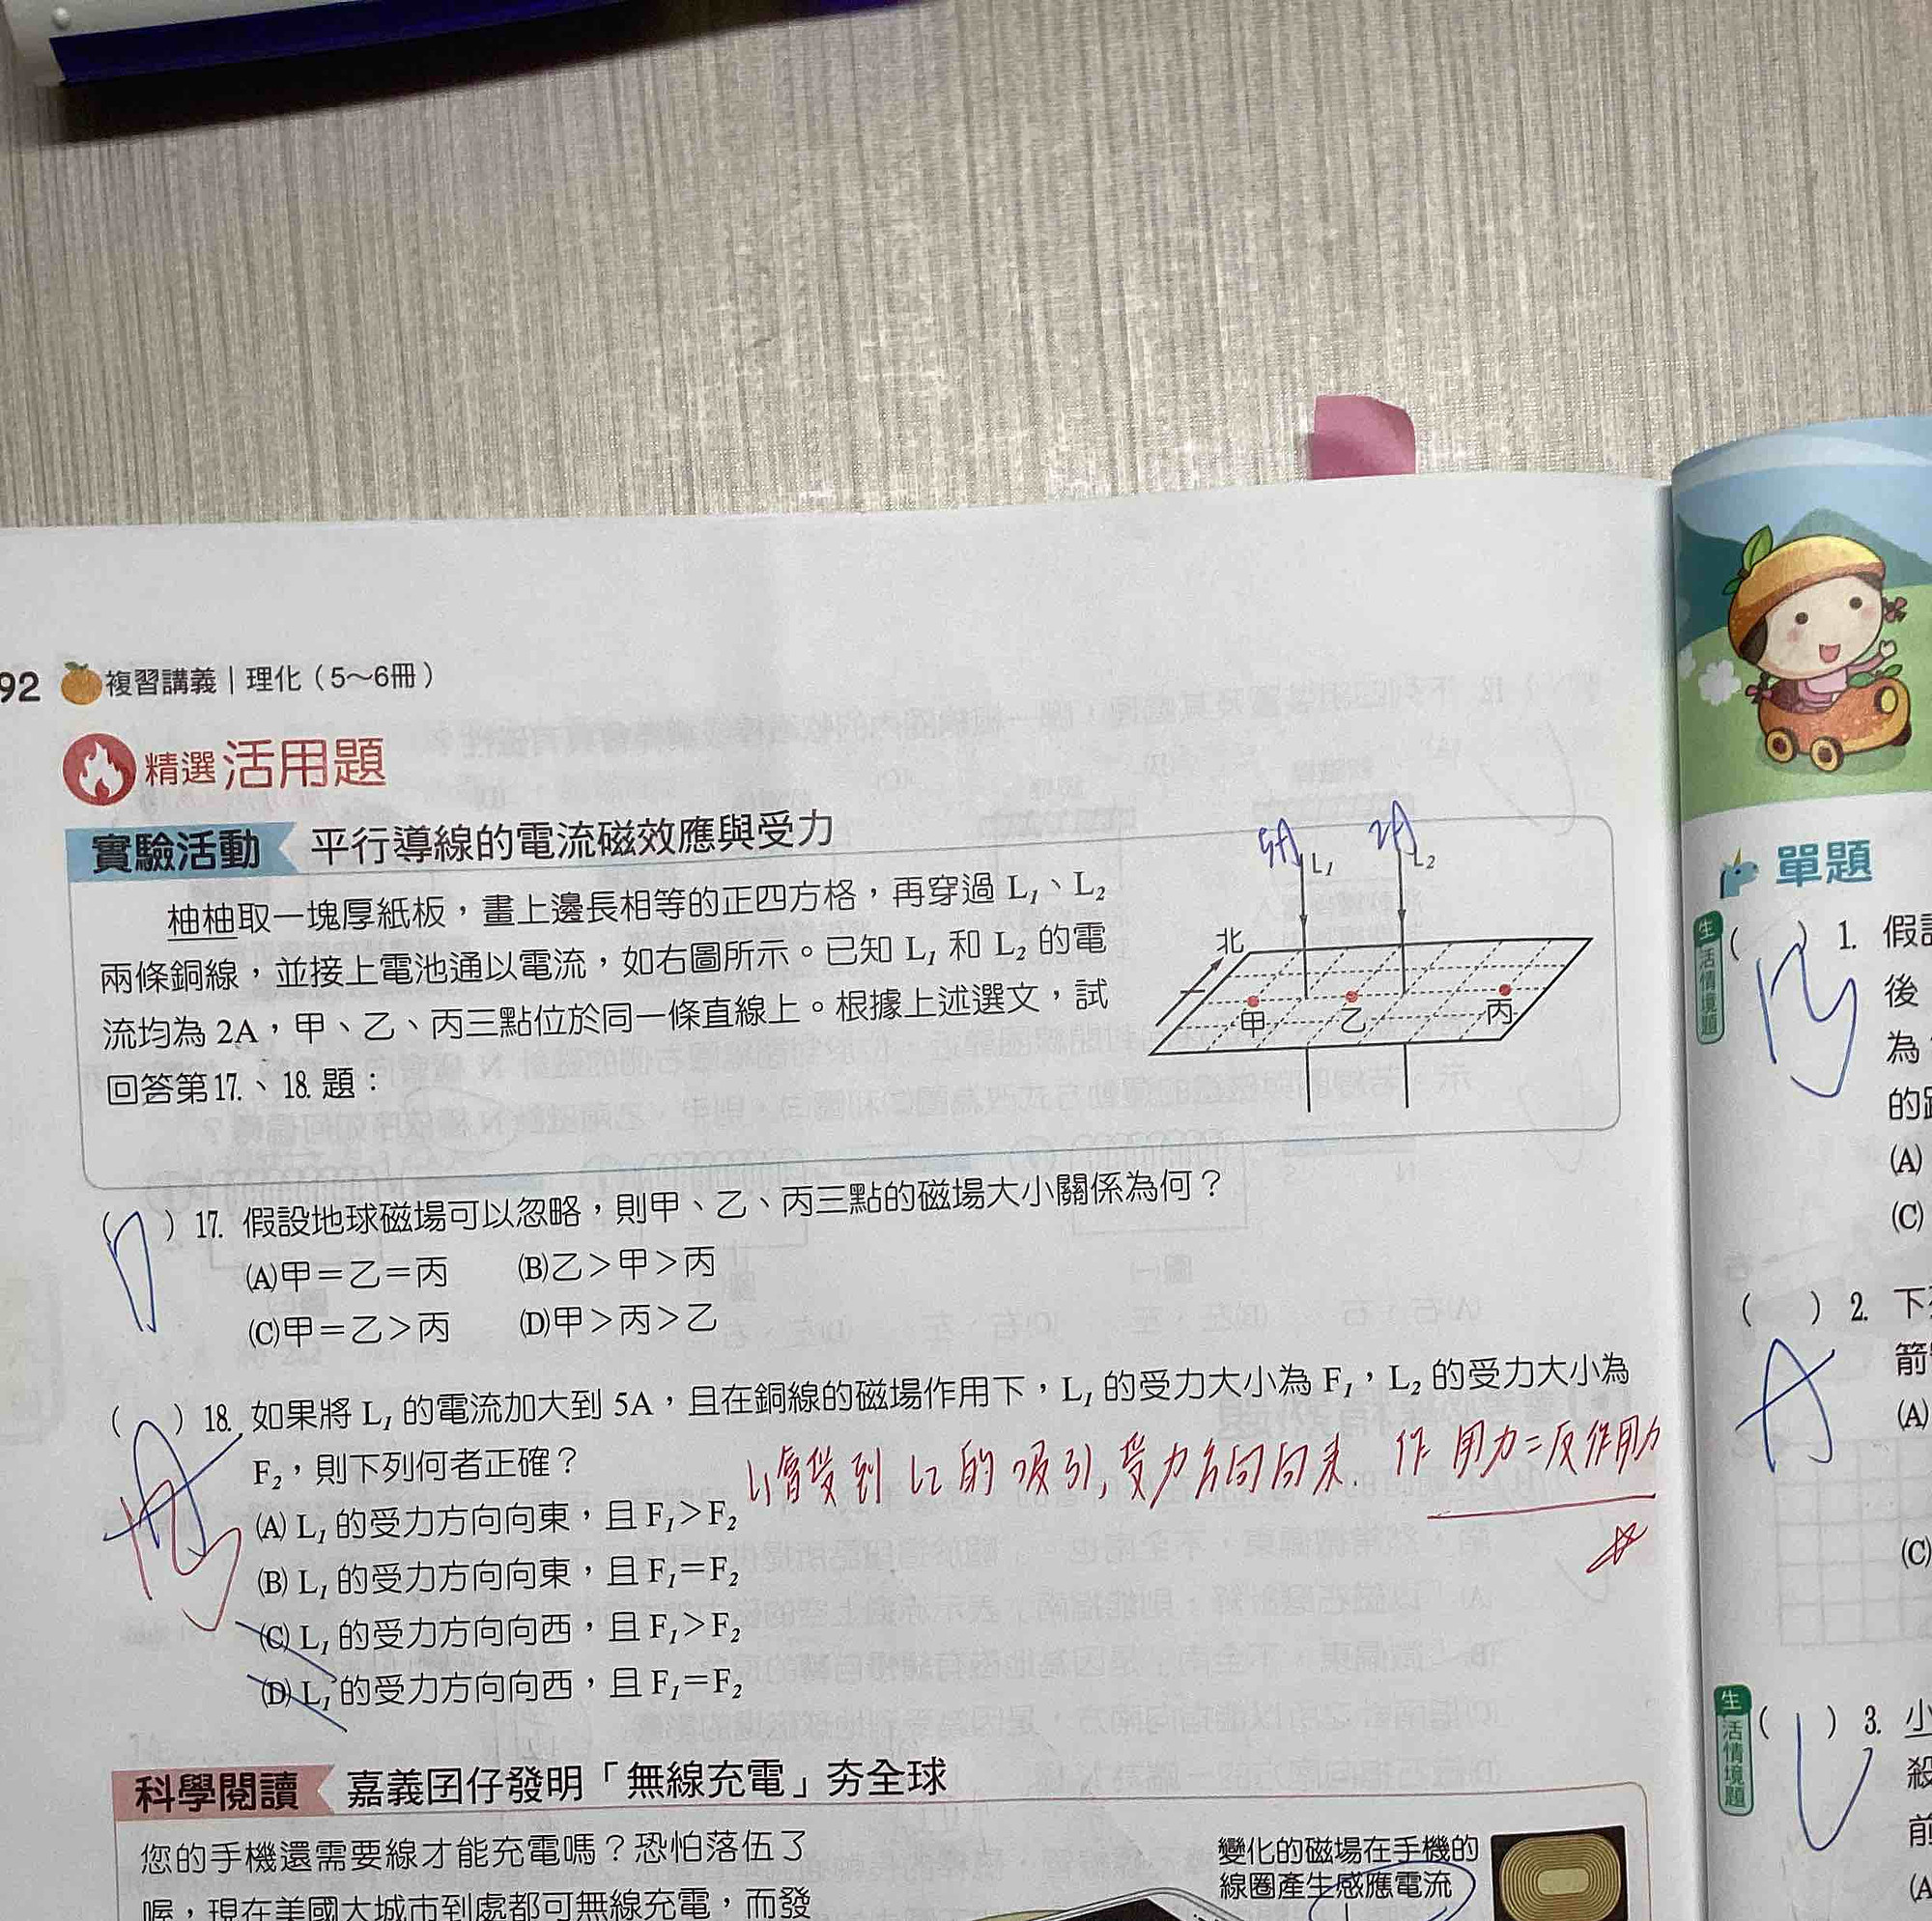 92 複習講義｜理化（5～6冊）
精選 活用題
實驗活動 平行導線的電流磁效應與受力
柚柚取一塊厚紙板，畫上邊長相等的正四方格，再穿過 L₁、L₂
兩條銅線，並接上電池通以電流，如右圖所示。已知 L₁ 和 L₂ 的電
流均為 2A，甲、乙、丙三點位於同一條直線上。根據上述選文，試
回答第17.、18. 題：
5A 2A
L₁ L₂
北
甲 乙 丙
（D）17. 假設地球磁場可以忽略，則甲、乙、丙三點的磁場大小關係為何？
(A)甲＝乙＝丙 (B)乙＞甲＞丙
(C)甲＝乙＞丙 (D)甲＞丙＞乙
（A B）18. 如果將 L₁ 的電流加大到 5A，且在銅線的磁場作用下，L₁ 的受力大小為 F₁，L₂ 的受力大小為
F₂，則下列何者正確？
L₁會受到 L₂ 的吸引, 受力方向向東. 作用力=反作用力
(A) L₁ 的受力方向向東，且 F₁＞F₂
(B) L₁ 的受力方向向東，且 F₁＝F₂
(C) L₁ 的受力方向向西，且 F₁＞F₂
(D) L₁ 的受力方向向西，且 F₁＝F₂
科學閱讀 嘉義囝仔發明「無線充電」夯全球
您的手機還需要線才能充電嗎？恐怕落伍了
喔，現在美國大城市到處都可無線充電，而發
變化的磁場在手機的
線圈產生感應電流
單題
生活情境題
（B）1. 假
後
為
的
(A)
(C)
（A）2. 下
箭
(A)
(C)
生活情境題
（ ）3. 小
殺
前
(A